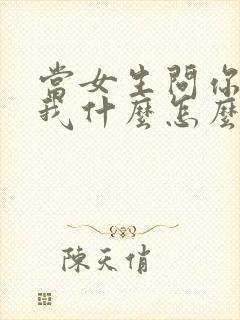 當女生問你
我什麼怎麼
陳天俏